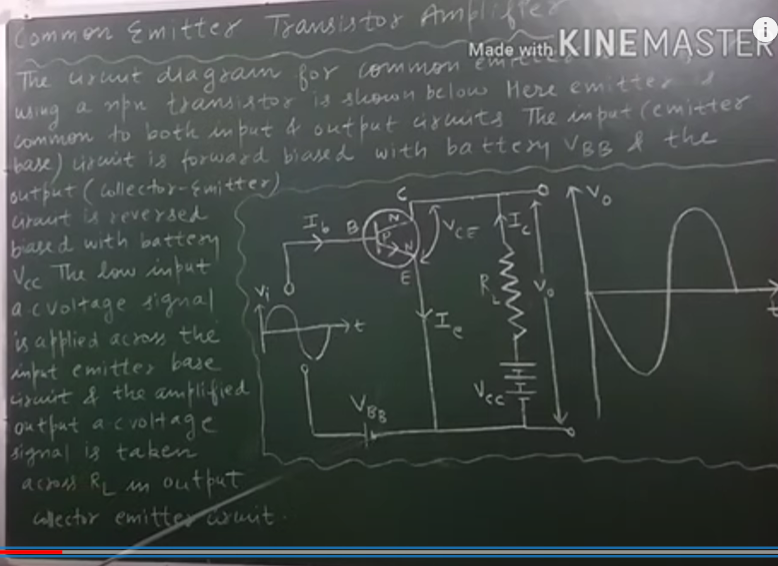 Common Emitter Transistor Amplifier
Made with KINEMASTER
The circuit diagram for common emitter
using a npn transistor is shown below Here emitter is
common to both input & output circuits The input (emitter
base) circuit is forward biased with battery VBB & the
output (collector-Emitter)
circuit is reversed
biased with battery
Vcc The low input
a.c voltage signal
is applied across the
input emitter base
circuit & the amplified
output a.c voltage
signal is taken
across RL in output
collector emitter circuit.
C
Ib
B
N
P
N
VCE
Ic
Vo
E
Vi
t
Ie
RL
Vo
t
VBB
Vcc